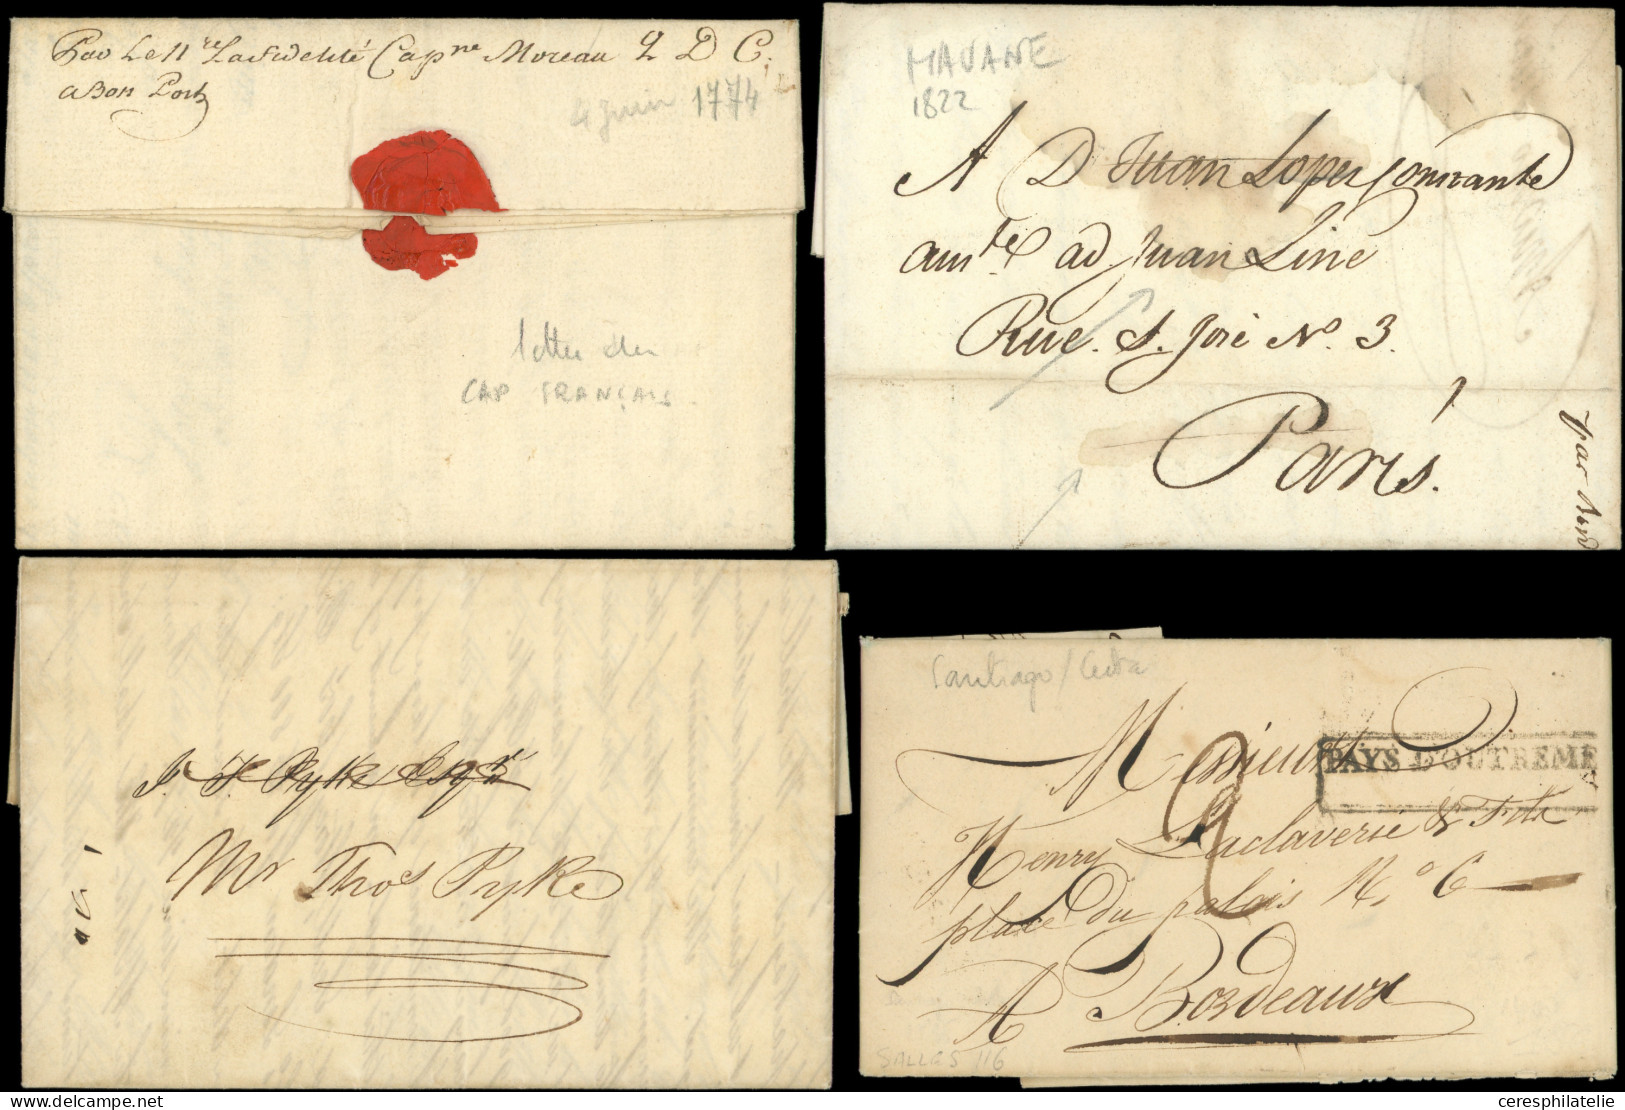 Par Le N.re La Fidelité Cap.ne Moreau Q D C.
a Bon Port
4 Juin 1774
letter du
CAP FRANÇAIS
HAVANE
1822
A D Juan Lopez
ad Juan Line
Rue. S. José Nº 3.
Paris.
J. F. Pyke Esqr
Mr Thos Pyke
Santiago/Cuba
PAYS D'OUTREME
Messieurs
2
Henry Laclaverie & Fils
place du palais N.º 6
A Bordeaux
SALLES 116
ceresphilatelie